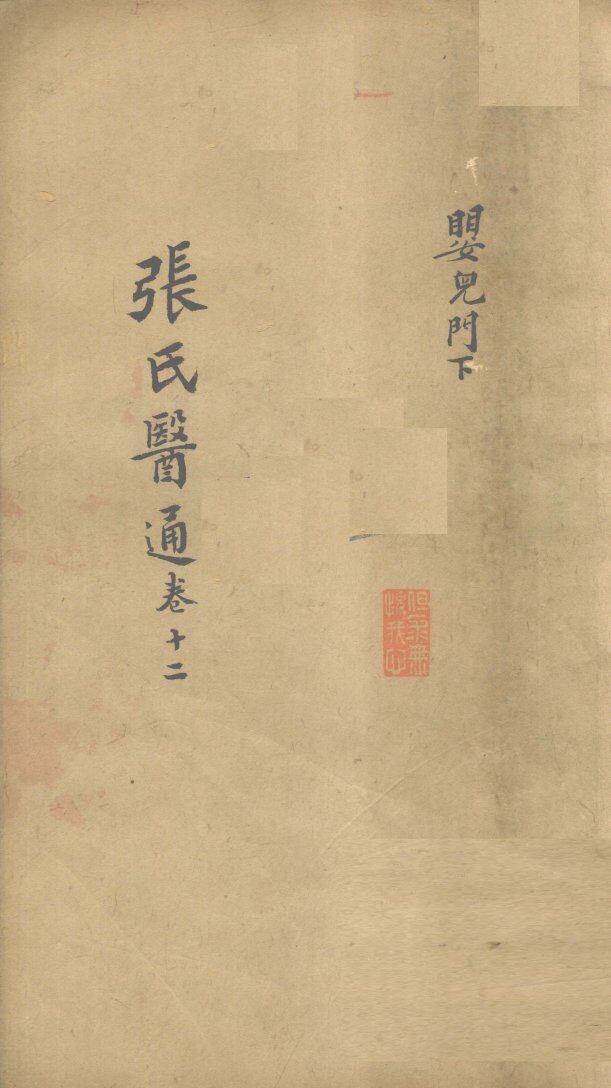 嬰兒門下
張氏醫通卷十二